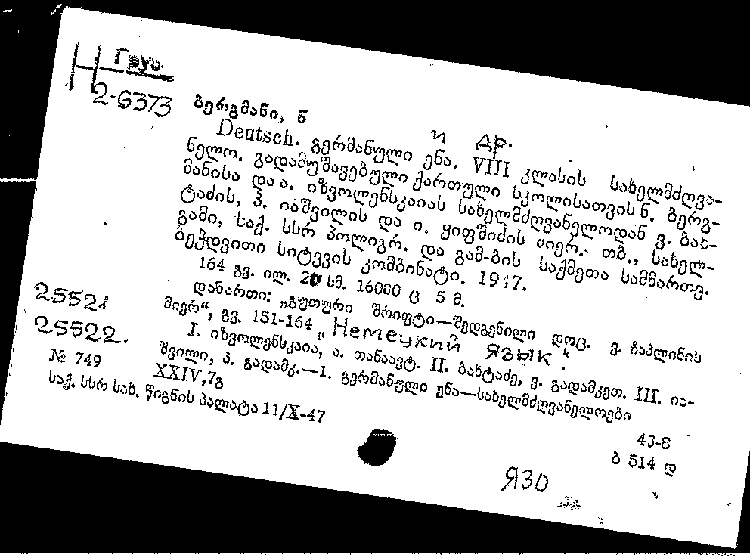 Груз.
Н
2-6373
ბერგმანი, ნ и др.
Deutsch. გერმანული ენა. VIII კლასის სახელმძღვა-
ნელო. გადამუშავებული ქართული სკოლისათვის ნ. ბერგ-
მანისა და ა. იზვოლენსკაიას სახელმძღვანელოდან ვ. ბახ-
ტაძის, პ. იაშვილის და ი. ყიფშიძის მიერ. თბ., სახელ-
გამი, საქ. სსრ პოლიგრ. და გამ-ბის საქმეთა სამმართვ.
ბეჭდვითი სიტყვის კომბინატი. 1947.
164 გვ. ილ. 20 სმ. 16000 ც 5 მ.
დანართი: „გუთური შრიფტი—შედგენილი დოც. ვ. ჩაპლინის
მიერ“, გვ. 151-164 „Немецкий язык“.
25521
25522.
I. იზვოლენსკაია, ა. თანაავტ. II. ბახტაძე, ვ. გადამკეთ. III. ია-
შვილი, პ. გადამკ.—1. გერმანული ენა—სახელმძღვანელოები
№ 749 XXIV,7გ
საქ. სსრ სახ. წიგნის პალატა 11/X-47
43-8
ბ 514 დ
ЯЗО